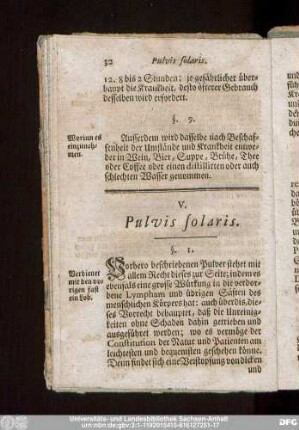 32 Pulvis solaris.
12. 8 bis 2 Stunden: je gefährlicher über-
haupt die Krankheit, desto öfterer Gebrauch
desselben wird erfordert.
§. 9.
Worinn es
einzuneh-
men.
Ausserdem wird dasselbe nach Beschaf-
fenheit der Umstände und Krankheit entwe-
der in Wein, Bier, Suppe, Brühe, Thee
oder Coffee oder einen distillirten oder auch
schlechten Wasser genommen.
V.
Pulvis solaris.
§. 1.
Verdienet
mit den vo-
rigen fast
ein Lob.
Vorhero beschriebenen Pulver stehet mit
allem Recht dieses zur Seite; indem es
ebenfals eine grosse Würkung in die verdor-
bene Lympham und übrigen Säften des
menschlichen Körpers hat: auch überdis die-
ses Vorrecht behauptet, daß die Unreinig-
keiten ohne Schaden dahin getrieben und
ausgeführet werden; wo es vermöge der
Constitution der Natur und Patienten am
leichtesten und bequemsten geschehen könne.
Denn findet sich eine Verstopfung von dicken
und
Universitäts- und Landesbibliothek Sachsen-Anhalt
urn:nbn:de:gbv:3:1-1192015415-616127251-17
DFG